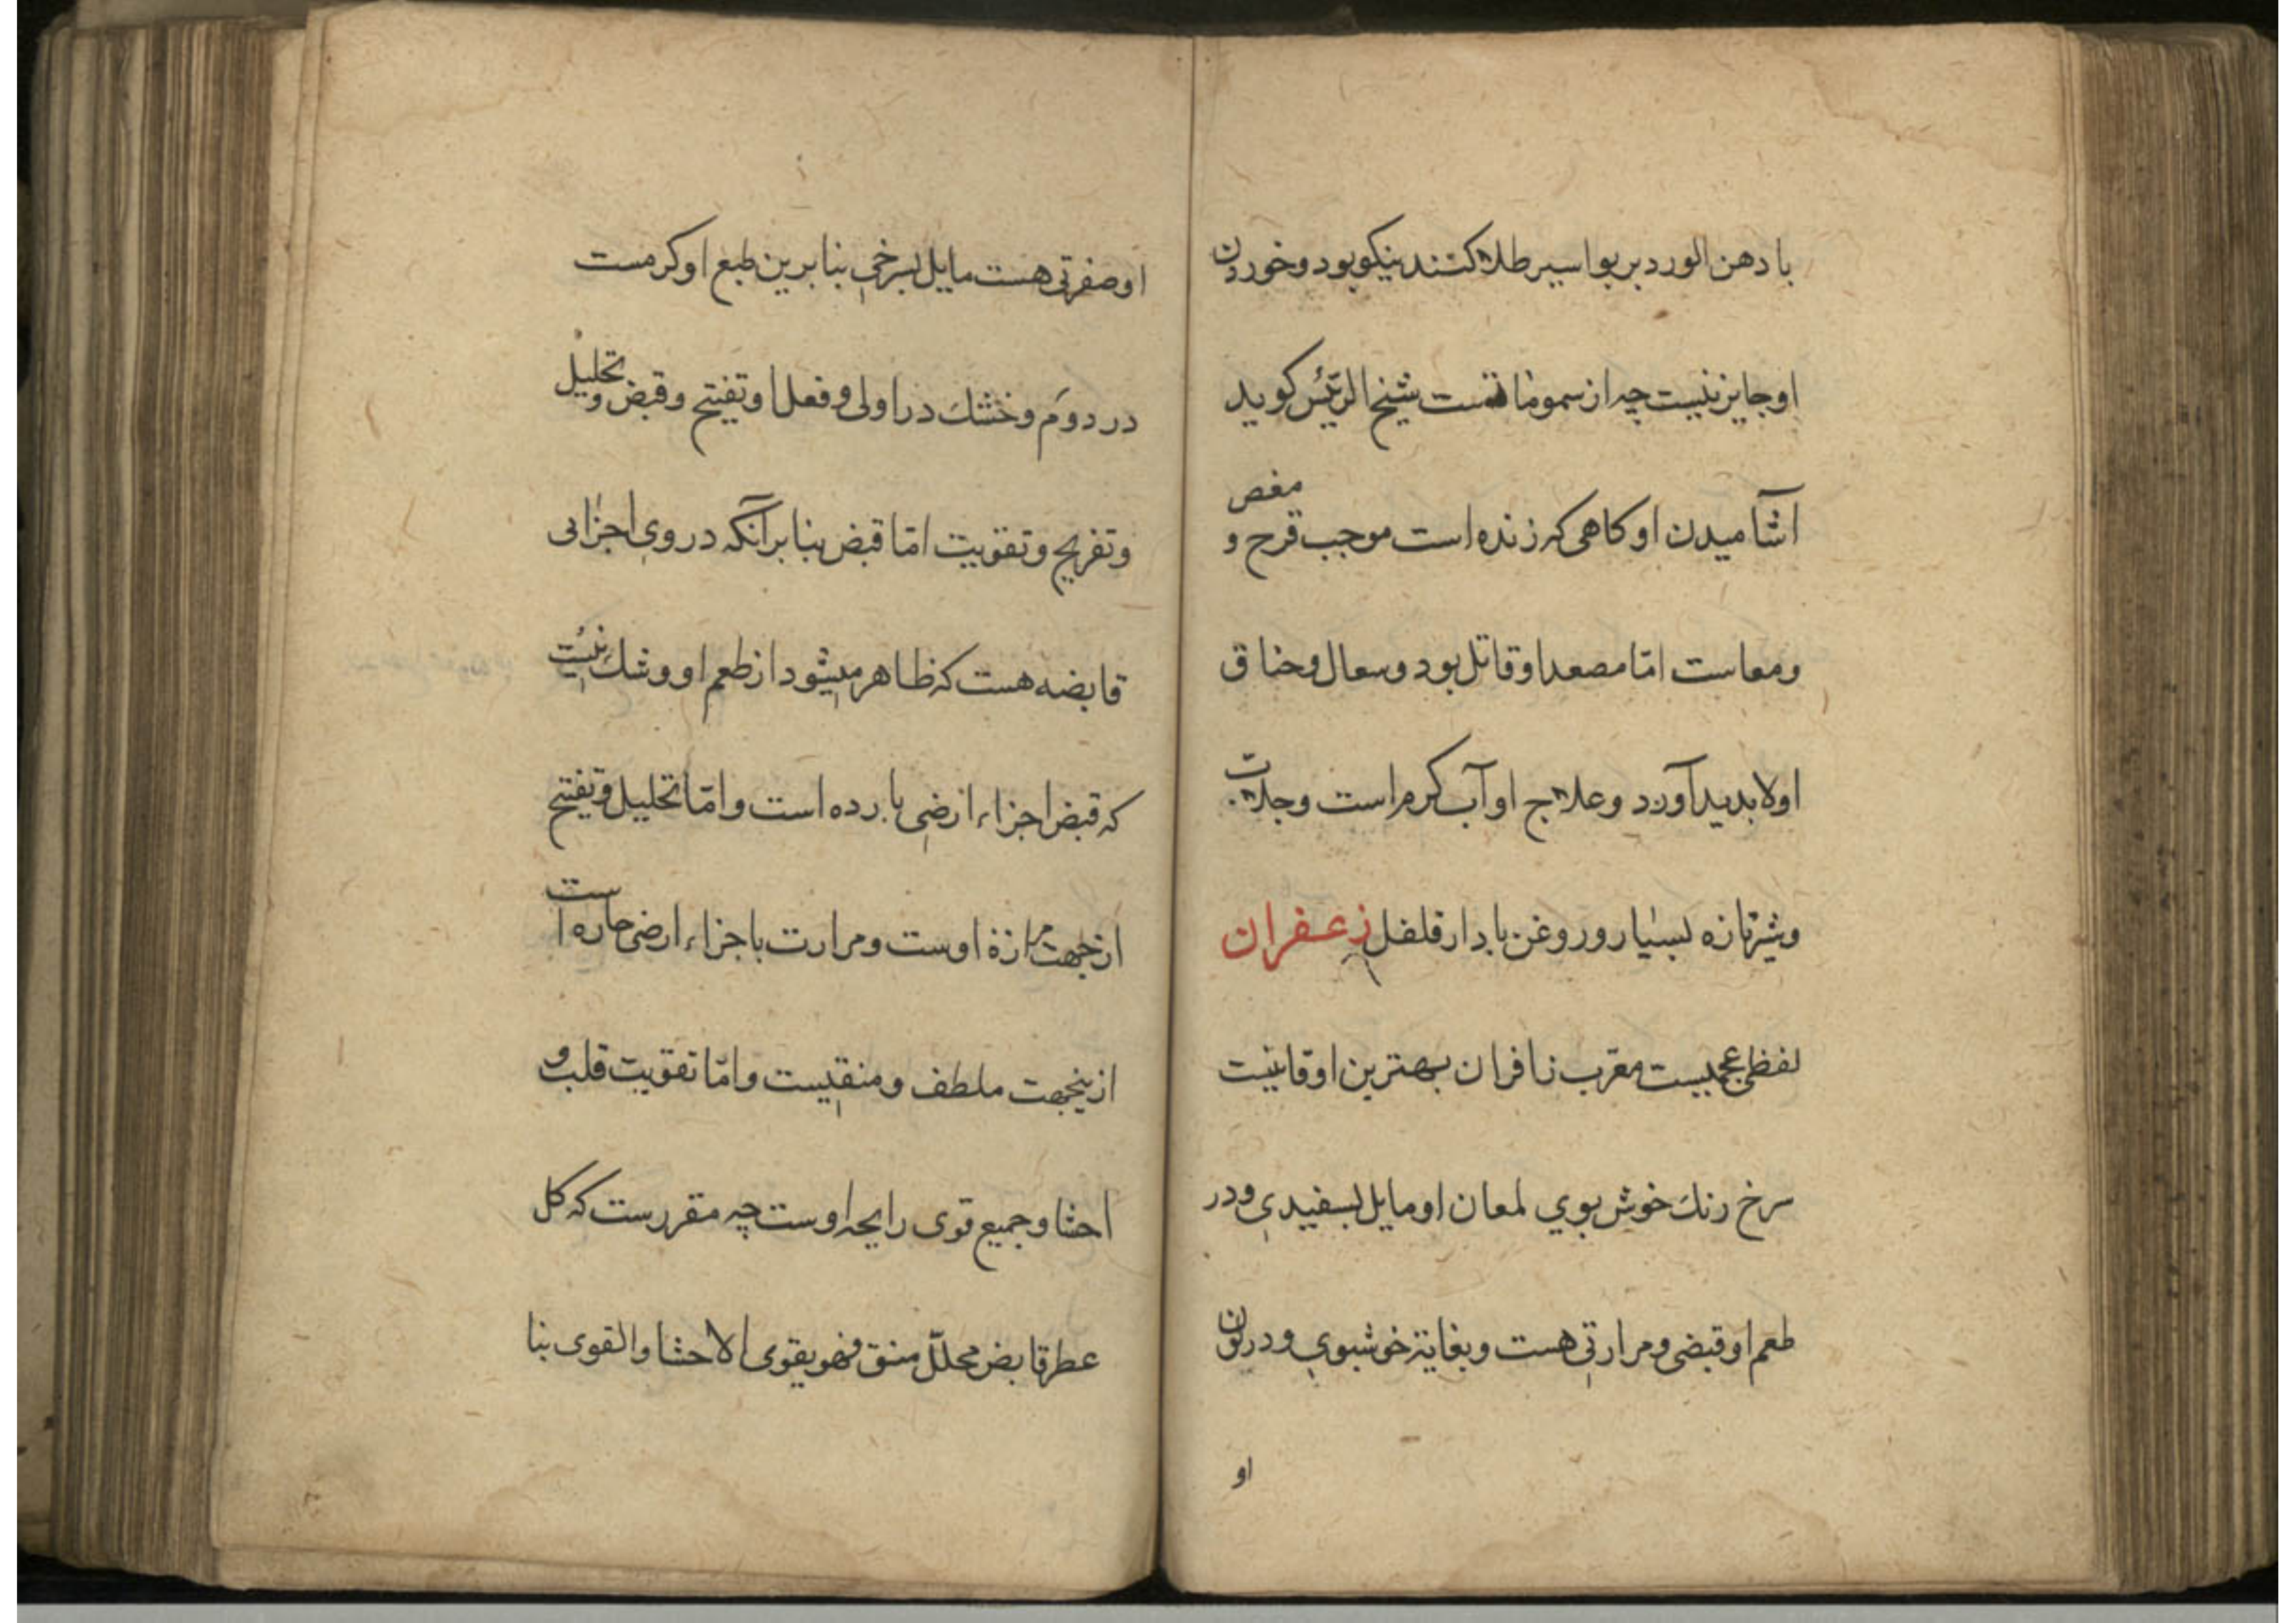 با دهن الورد بر بواسیر طلا کنند نیکو بود و خوردن
او جایز نیست چه از سموم است شیخ الرئیس کوید
آشامیدن او کاهی که زنده است موجب قرح و مغص
ومعاست امّا مصعد او قاتل بود وسعال وخناق
اولا بدید آورد وعلاج او آب کرم است وجلاب
وشیر تازه بسیار و روغن با دارفلفل زعفران
لفظی عجمیست معّرب زافران بهترین او قاینیست
سرخ رنك خوش بوي لمعان او مایل بسفیدي ودر
طعم او قبضی ومرارتی هست وبغایة خوشبوی ودر لون
او
او صفرتی هست مایل بسرخي بنا برین طبع او کرمست
در دوم وخشك در اولی وفعل او تفتیح وقبض وتحلیل
وتفریح وتقویت امّا قبض بنا بر آنکه در وی اجزائی
قابضه هست که ظاهر میشود از طعم او وشك نیست
که قبض اجزاء ارضی بارده است وامّا تحلیل وتفتیح
از جهت حرارة اوست ومرارت با جزاء ارضی حاره است
ازینجهت ملطف ومنقیست وامّا تقویت قلب و
احشا وجمیع قوی رایحه اوست چه مقررست که کل
عطر قابض محلّل منق فهو یقوی الاحشا والقوی بنا